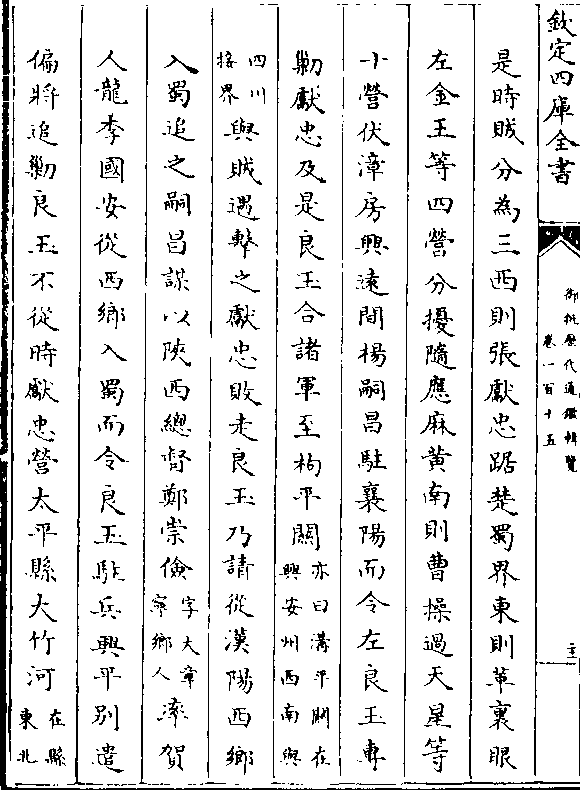 欽定四庫全書
御批歷代通鑑輯覽
卷一百十五
是時賊分為三西則張獻忠踞楚蜀界東則革裏眼
左金王等四營分擾隨應麻黃南則曹操過天星等
十營伏漳房興遠間楊嗣昌駐襄陽而令左良玉專
勦獻忠及是良玉合諸軍至枸平關亦曰溝平關在興安州西南與
四川接界與賊遇擊之獻忠敗走良玉乃請從漢陽西鄉
入蜀追之嗣昌謀以陝西總督鄭崇儉字大章寧鄉人率賀
人龍李國安從西鄉入蜀而令良玉駐兵興平別遣
偏將追勦良玉不從時獻忠營太平縣大竹河在縣東北